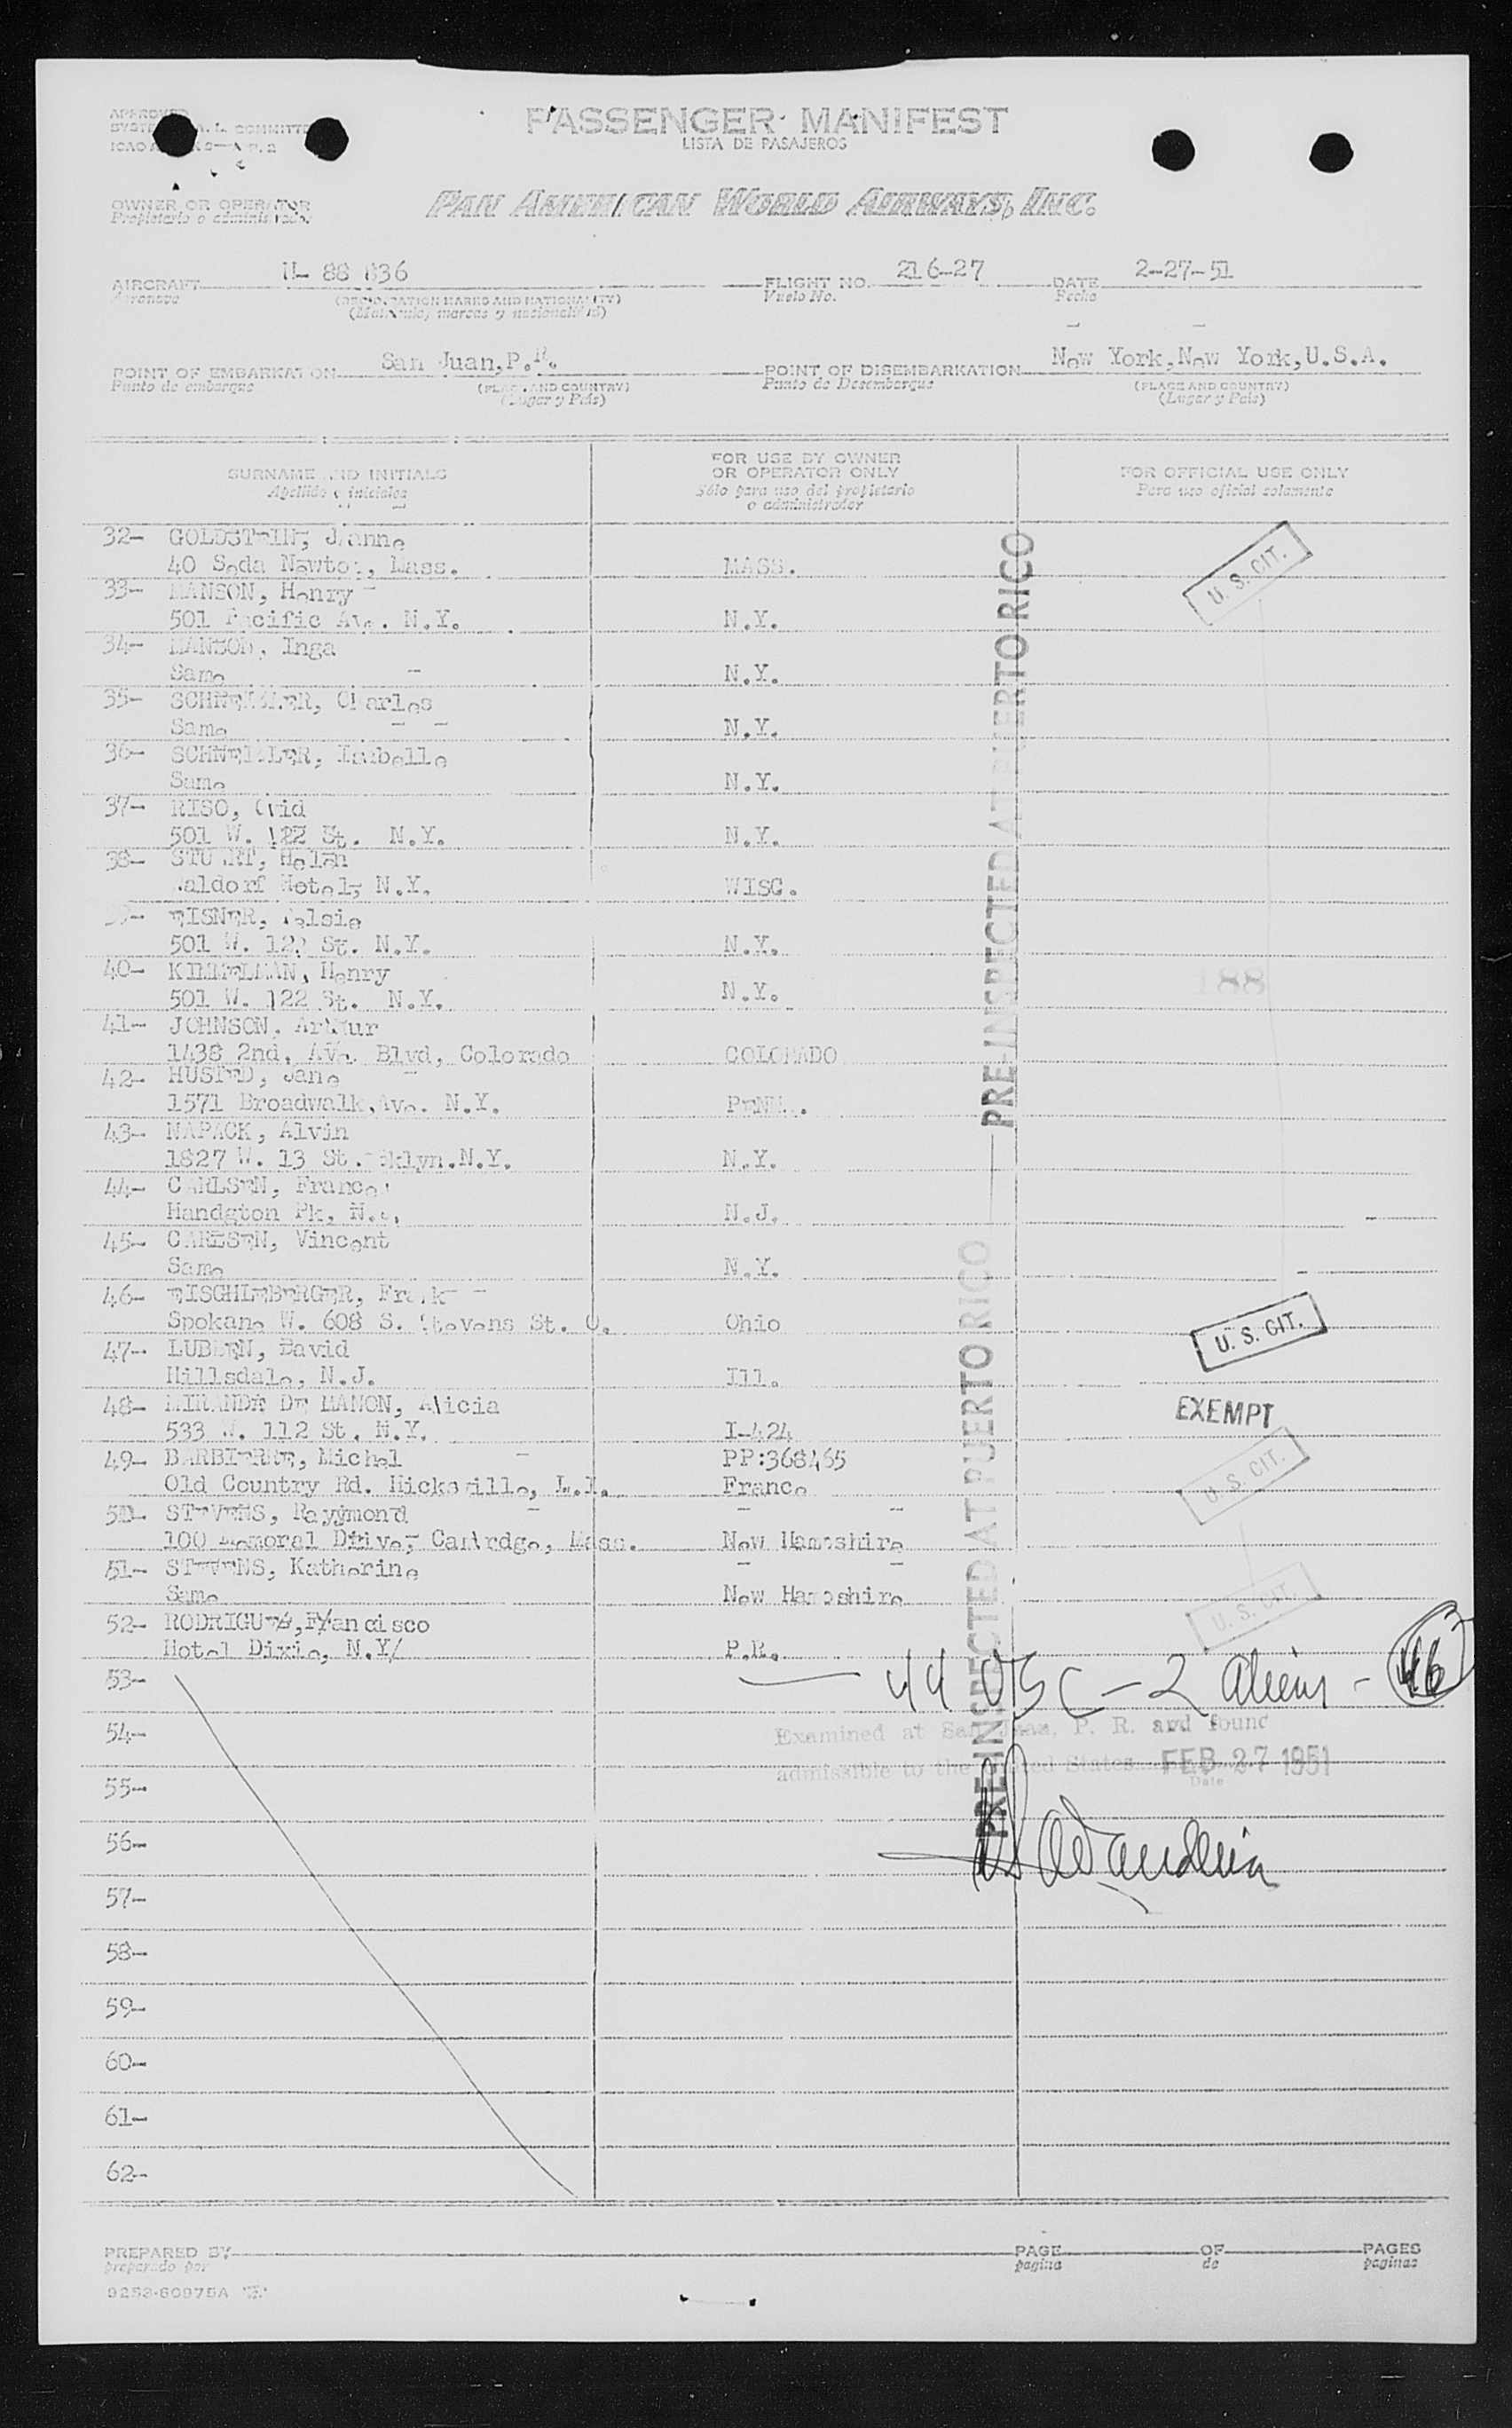 APPROVED
PASSENGER MANIFEST
LISTA DE PASAJEROS
OWNER OR OPERATOR
Propietario o administrador
PAN AMERICAN WORLD AIRWAYS, INC.
AIRCRAFT N- 88 836 FLIGHT NO. 216-27 DATE 2-27-51
Aeronave (REGISTRATION MARKS AND NATIONALITY) Vuelo No. Fecha
(Matricula, marcas y nacionalidad)
POINT OF EMBARKATION San Juan, P.R. POINT OF DISEMBARKATION New York, New York, U.S.A.
Punto de embarque (PLACE AND COUNTRY) Punto de Desembarque (PLACE AND COUNTRY)
(Lugar y País) (Lugar y País)
SURNAME AND INITIALS FOR USE BY OWNER OR OPERATOR ONLY FOR OFFICIAL USE ONLY
Apellido y iniciales Sólo para uso del propietario o administrador Para uso oficial solamente
32- GOLDSTEIN, Jeanne
40 Seda Newton, Mass. MASS. U. S. CIT.
33- MANSON, Henry
501 Pacific Ave. N.Y. N.Y.
34- MANSON, Inga
Same N.Y.
35- Charles
Same N.Y.
36- Isabelle
Same N.Y.
37- RISO, Ovid
501 W. 122 St. N.Y. N.Y.
38- STUART, Helen
Waldorf Hotel, N.Y. WISC.
39- EISNER,
501 W. 122 St. N.Y. N.Y.
40- KIMMELMAN, Henry
501 W. 122 St. N.Y. N.Y. 188
41- JOHNSON, Arthur
1438 2nd, Ave. Blvd, Colorado COLORADO
42- HUSTED, Jane
1571 Broadwalk, Ave. N.Y. PENN.
43- NAPACK, Alvin
1827 W. 13 St. Bklyn. N.Y. N.Y.
44- CARLSEN, Frances
Handgton Pk, N.J. N.J.
45- CARLSEN, Vincent
Same N.Y.
46- EISCHLEBERGER, Frank
Spokane W. 608 S. Stevens St. O. Ohio U. S. CIT.
47- LUBBEN, David
Hillsdale, N.J. Ill.
48- MIRANDA DE MANON, Alicia EXEMPT
533 W. 112 St. N.Y. I-424
49- Michel PP:368465
Old Country Rd. Hicksville, L.I. France U. S. CIT.
50- STEVENS, Rayymond
100 Memoral Ddive, Cambrdge, Mass. New Hampshire
51- STEVENS, Katherine
Same New Hampshire U. S. CIT.
52- RODRIGUEZ, Francisco
Hotel Dixie, N.Y/ P.R.
PRE-INSPECTED AT PUERTO RICO
PRE-INSPECTED AT PUERTO RICO
53- 44 USC - 2 aliens - 46
54- Examined at San Juan, P. R. and found
admissible to the United States FEB 27 1951
Date
55-
56-
57-
58-
59-
60-
61-
62-
PREPARED BY PAGE OF PAGES
preparado por pagina de paginas
9253-60975A